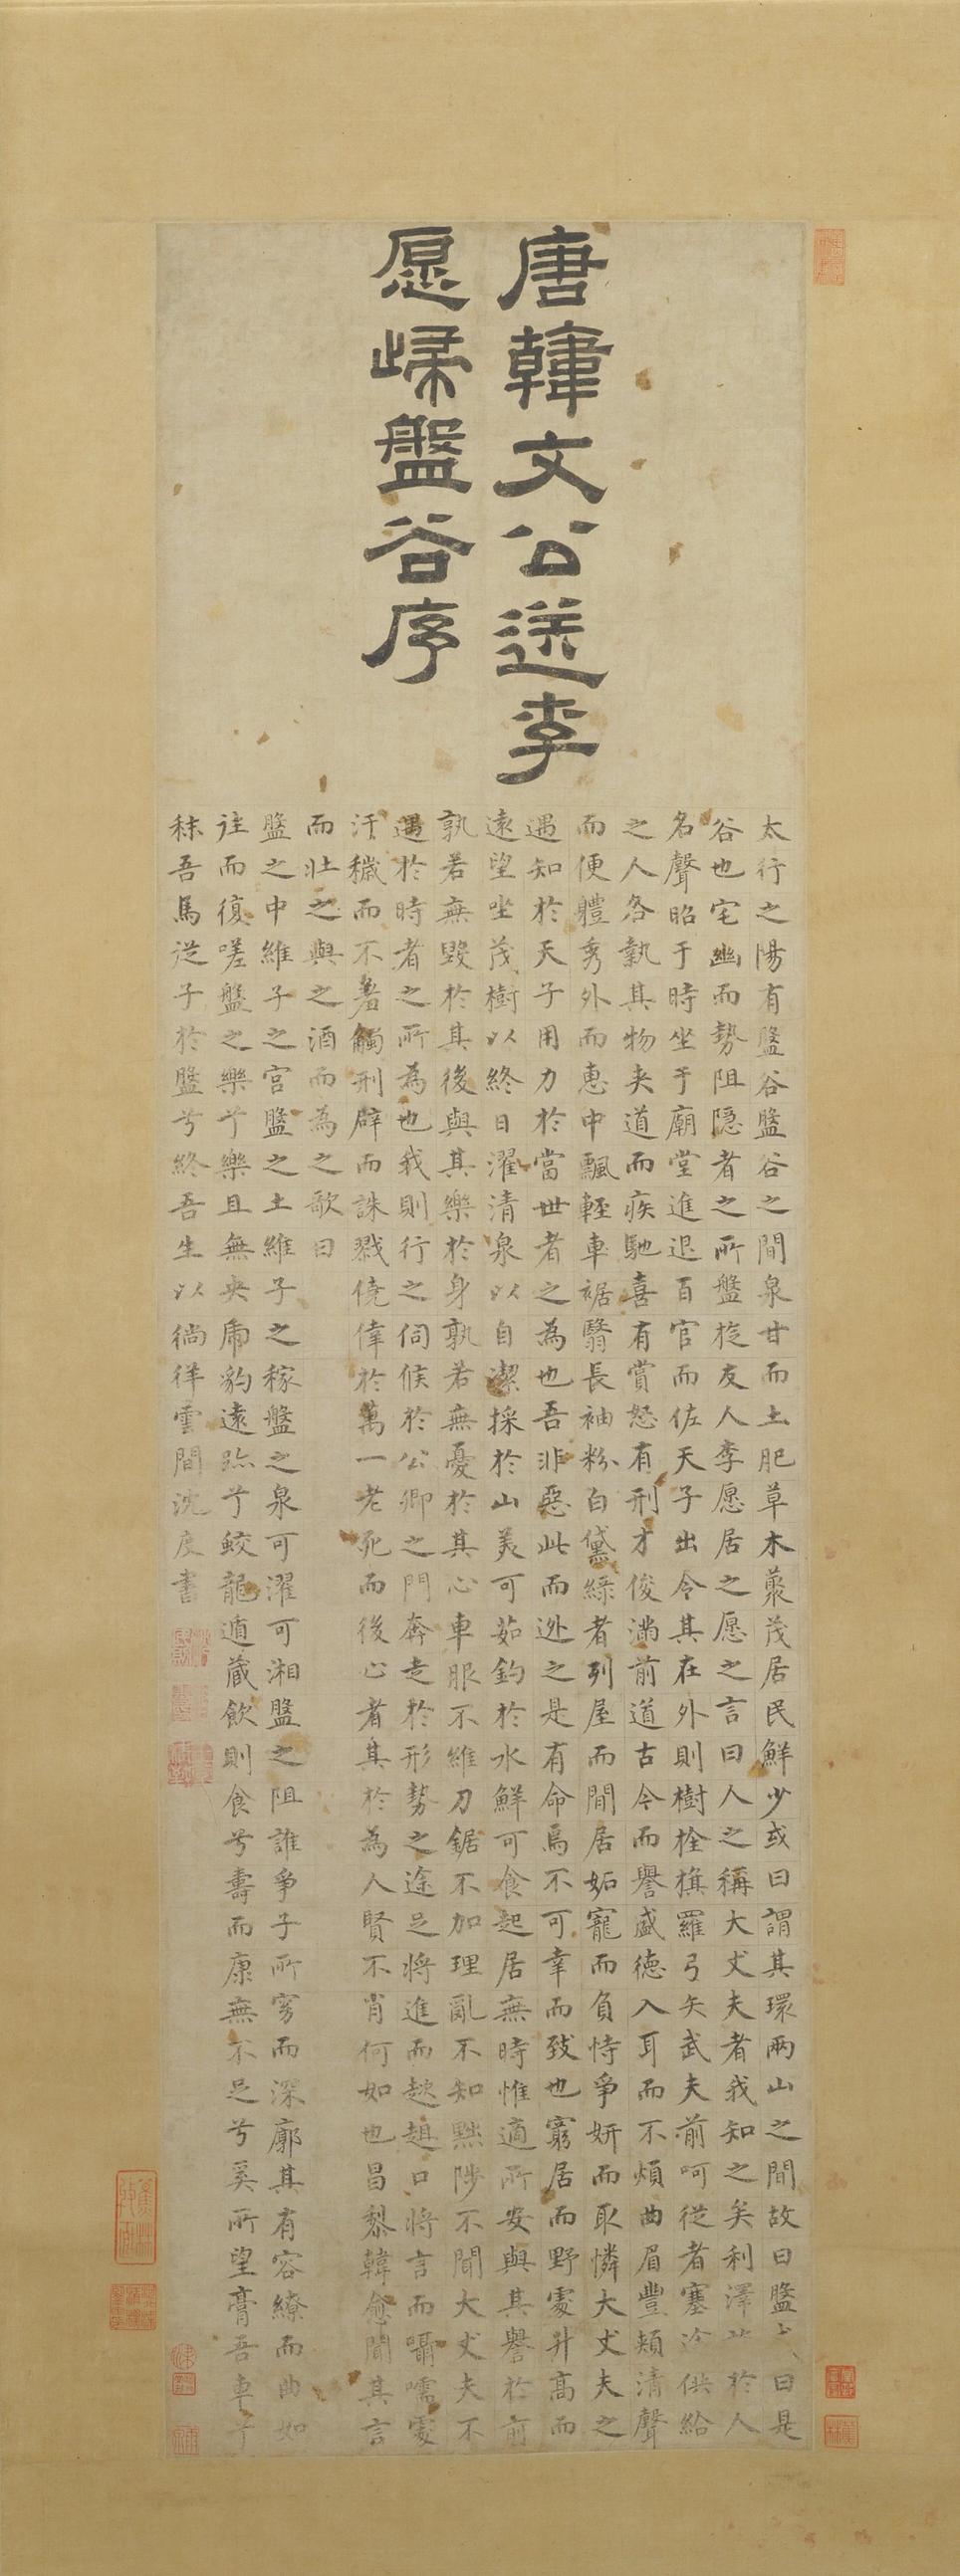 唐韓文公送李
愿歸盤谷序
太行之陽有盤谷盤谷之間泉甘而土肥草木藂茂居民鮮少或曰謂其環兩山之間故曰盤或曰是
谷也宅幽而勢阻隱者之所盤旋友人李愿居之愿之言曰人之稱大丈夫者我知之矣利澤施於人
名聲昭于時坐于廟堂進退百官而佐天子出令其在外則樹栓旗羅弓矢武夫前呵從者塞途供給
之人各執其物夾道而疾馳喜有賞怒有刑才俊滿前道古今而譽盛德入耳而不煩曲眉豐頰清聲
而便體秀外而惠中飄輕車裾翳長袖粉白黛綠者列屋而閒居妬寵而負恃爭妍而取憐大丈夫之
遇知於天子用力於當世者之為也吾非惡此而逃之是有命焉不可幸而致也窮居而野處升高而
遠望坐茂樹以終日濯清泉以自潔採於山美可茹釣於水鮮可食起居無時惟適所安與其譽於前
孰若無毀於其後與其樂於身孰若無憂於其心車服不維刀鋸不加理亂不知黜陟不聞大丈夫不
遇於時者之所為也我則行之伺候於公卿之門奔走於形勢之途足將進而趑趄口將言而囁嚅處
汙穢而不羞觸刑辟而誅戮僥倖於萬一老死而後心者其於為人賢不肖何如也昌黎韓愈聞其言
而壯之與之酒而為之歌曰
盤之中維子之宮盤之土維子之稼盤之泉可濯可湘盤之阻誰爭子所窈而深廓其有容繚而曲如
往而復嗟盤之樂兮樂且無央虎豹遠跡兮蛟龍遁藏飲則食兮壽而康無不足兮奚所望膏吾車兮
秣吾馬從子於盤兮終吾生以徜徉雲間沈度書